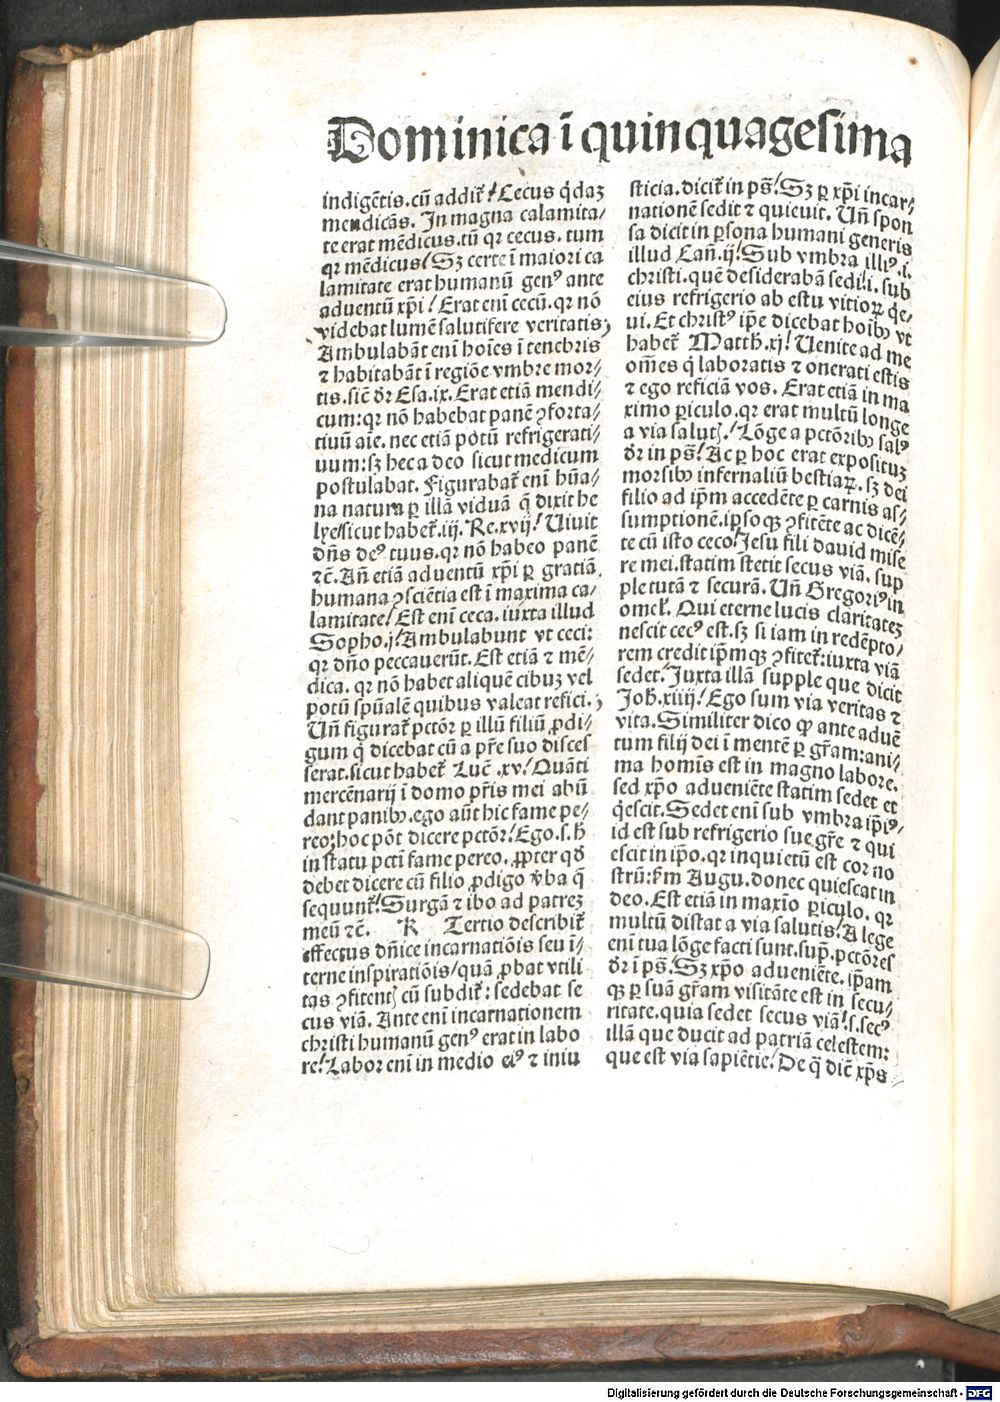 Dominica ī quinquagesima
indigētis. cū addit᷑ / Cecus q̇daꝫ
mendicās. In magna calamita/
te erat mēdicus. tū qꝛ cecus. tum
qꝛ mēdicus / Sꝫ certe ī maiori ca
lamitate erat humanū genꝰ ante
aduentū xp̄i / Erat enī cecū. qꝛ nō
videbat lumē salutifere veritatis
Ambulabāt enī hoīes ī tenebris
⁊ habitabāt ī regiōe vmbre mor/
tis. sic̄ dꝛ̄ Esa. ix. Erat etiā mendi/
cum: qꝛ nō habebat panē ꝯforta/
tiuū aīe. nec etiā potū refrigerati/
uum: sꝫ hec a deo sicut medicum
postulabat. Figurabat᷑ enī hūa/
na natura ꝑ illā viduā q̄ dixit he
lye / sicut habet᷑. iij. Re. xvij / Viuit
dn̄s deꝰ tuus. qꝛ nō habeo panē
⁊c̄. An̄ etiā aduentū xp̄i ꝑ gratiā
humana ꝯsciētia est ī maxima ca/
lamitate / Est enī ceca. iuxta illud
Sopho. j / Ambulabunt vt ceci:
qꝛ dn̄o peccauerūt. Est etiā ⁊ mē/
dica. qꝛ nō habet aliquē cibuꝫ vel
potū spūalē quibus valeat refici.
Un̄ figurat᷑ pctōꝛ ꝑ illū filiū ꝓdi/
gum q̇ dicebat cū a pr̄e suo disces
serat. sicut habet᷑ Luc̄. xv / Quāti
mercēnarij ī domo pr̄is mei abū
dant panibꝫ. ego aūt hic fame pe/
reo; hoc pōt dicere pctōꝛ / Ego. s. h̄
in statu pcti fame pereo. ꝓpter qd̄
debet dicere cū filio ꝓdigo v̄ba q̄
sequunt᷑ / Surgā ⁊ ibo ad patreꝫ
meū ⁊c̄. K Tertio describit᷑
effectus dn̄ice incarnatiōis seu ī/
terne inspiratiōis / quā ꝓbat vtili
tas ꝯfitentꝭ cū subdit᷑: sedebat se
cus viā. Ante enī incarnationem
christi humanū genꝰ erat in labo
re / Labor enī in medio eiꝰ ⁊ iniu
sticia. dicit᷑ in ps̄ / Sꝫ ꝑ xp̄i incar/
nationē sedit ⁊ quieuit. Un̄ spon
sa dicit in ꝑsona humani generis
illud Can̄. ij / Sub vmbra illiꝰ. i.
christi. quē desiderabā sedi / i. sub
eius refrigerio ab estu vitioꝝ q̇e/
ui. Et christꝰ ip̄e dicebat hoībꝫ vt
habet᷑ Matth. xj / Venite ad me
om̄es q̇ laboratis ⁊ onerati estis
⁊ ego reficiā vos. Erat etiā in ma
ximo ꝑiculo. qꝛ erat multū longe
a via salutꝭ / Lōge a pctōribꝫ salꝰ
dꝛ̄ in ps̄ / Ac ꝑ hoc erat expositus
morsibꝫ infernaliū bestiaꝝ. sꝫ dei
filio ad ip̄m accedēte ꝑ carnis as/
sumptionē. ipsoqꝫ ꝯfitēte ac dicē/
te cū isto ceco / Jesu fili dauid mise
re mei. statim stetit secus viā. sup
ple tutā ⁊ securā. Un̄ Gregoriꝰ in
omel̄. Qui eterne lucis claritateꝫ
nescit cecꝰ est. sꝫ si iam in redēpto/
rem credit ip̄mqꝫ ꝯfitet᷑: iuxta viā
sedet. Juxta illā supple que dicit
Joh̄. xiiij / Ego sum via veritas ⁊
vita. Similiter dico ꝙ ante aduē
tum filij dei ī mentē ꝑ gr̄am: ani/
ma homīs est in magno labore.
sed xp̄o adueniēte statim sedet et
q̇escit. Sedet enī sub vmbra ip̄iꝰ/
id est sub refrigerio sue gr̄e ⁊ qui
escit in ip̄o. qꝛ inquietū est cor no
strū: s̄m Augu. donec quiescat in
deo. Est etiā in maxīo ꝑiculo. qꝛ
multū distat a via salutis / A lege
enī tua lōge facti sunt. sup̄. pctōres
dꝛ̄ ī ps̄ / Sꝫ xp̄o adueniēte. ip̄am
qꝫ ꝑ suā gr̄am visitāte est in secu/
ritate. quia sedet secus viā / s. secꝰ
illā que ducit ad patriā celestem:
que est via sapiētie / De q̄ dic̄ xp̄s
Digitalisierung gefördert durch die Deutsche Forschungsgemeinschaft - DFG